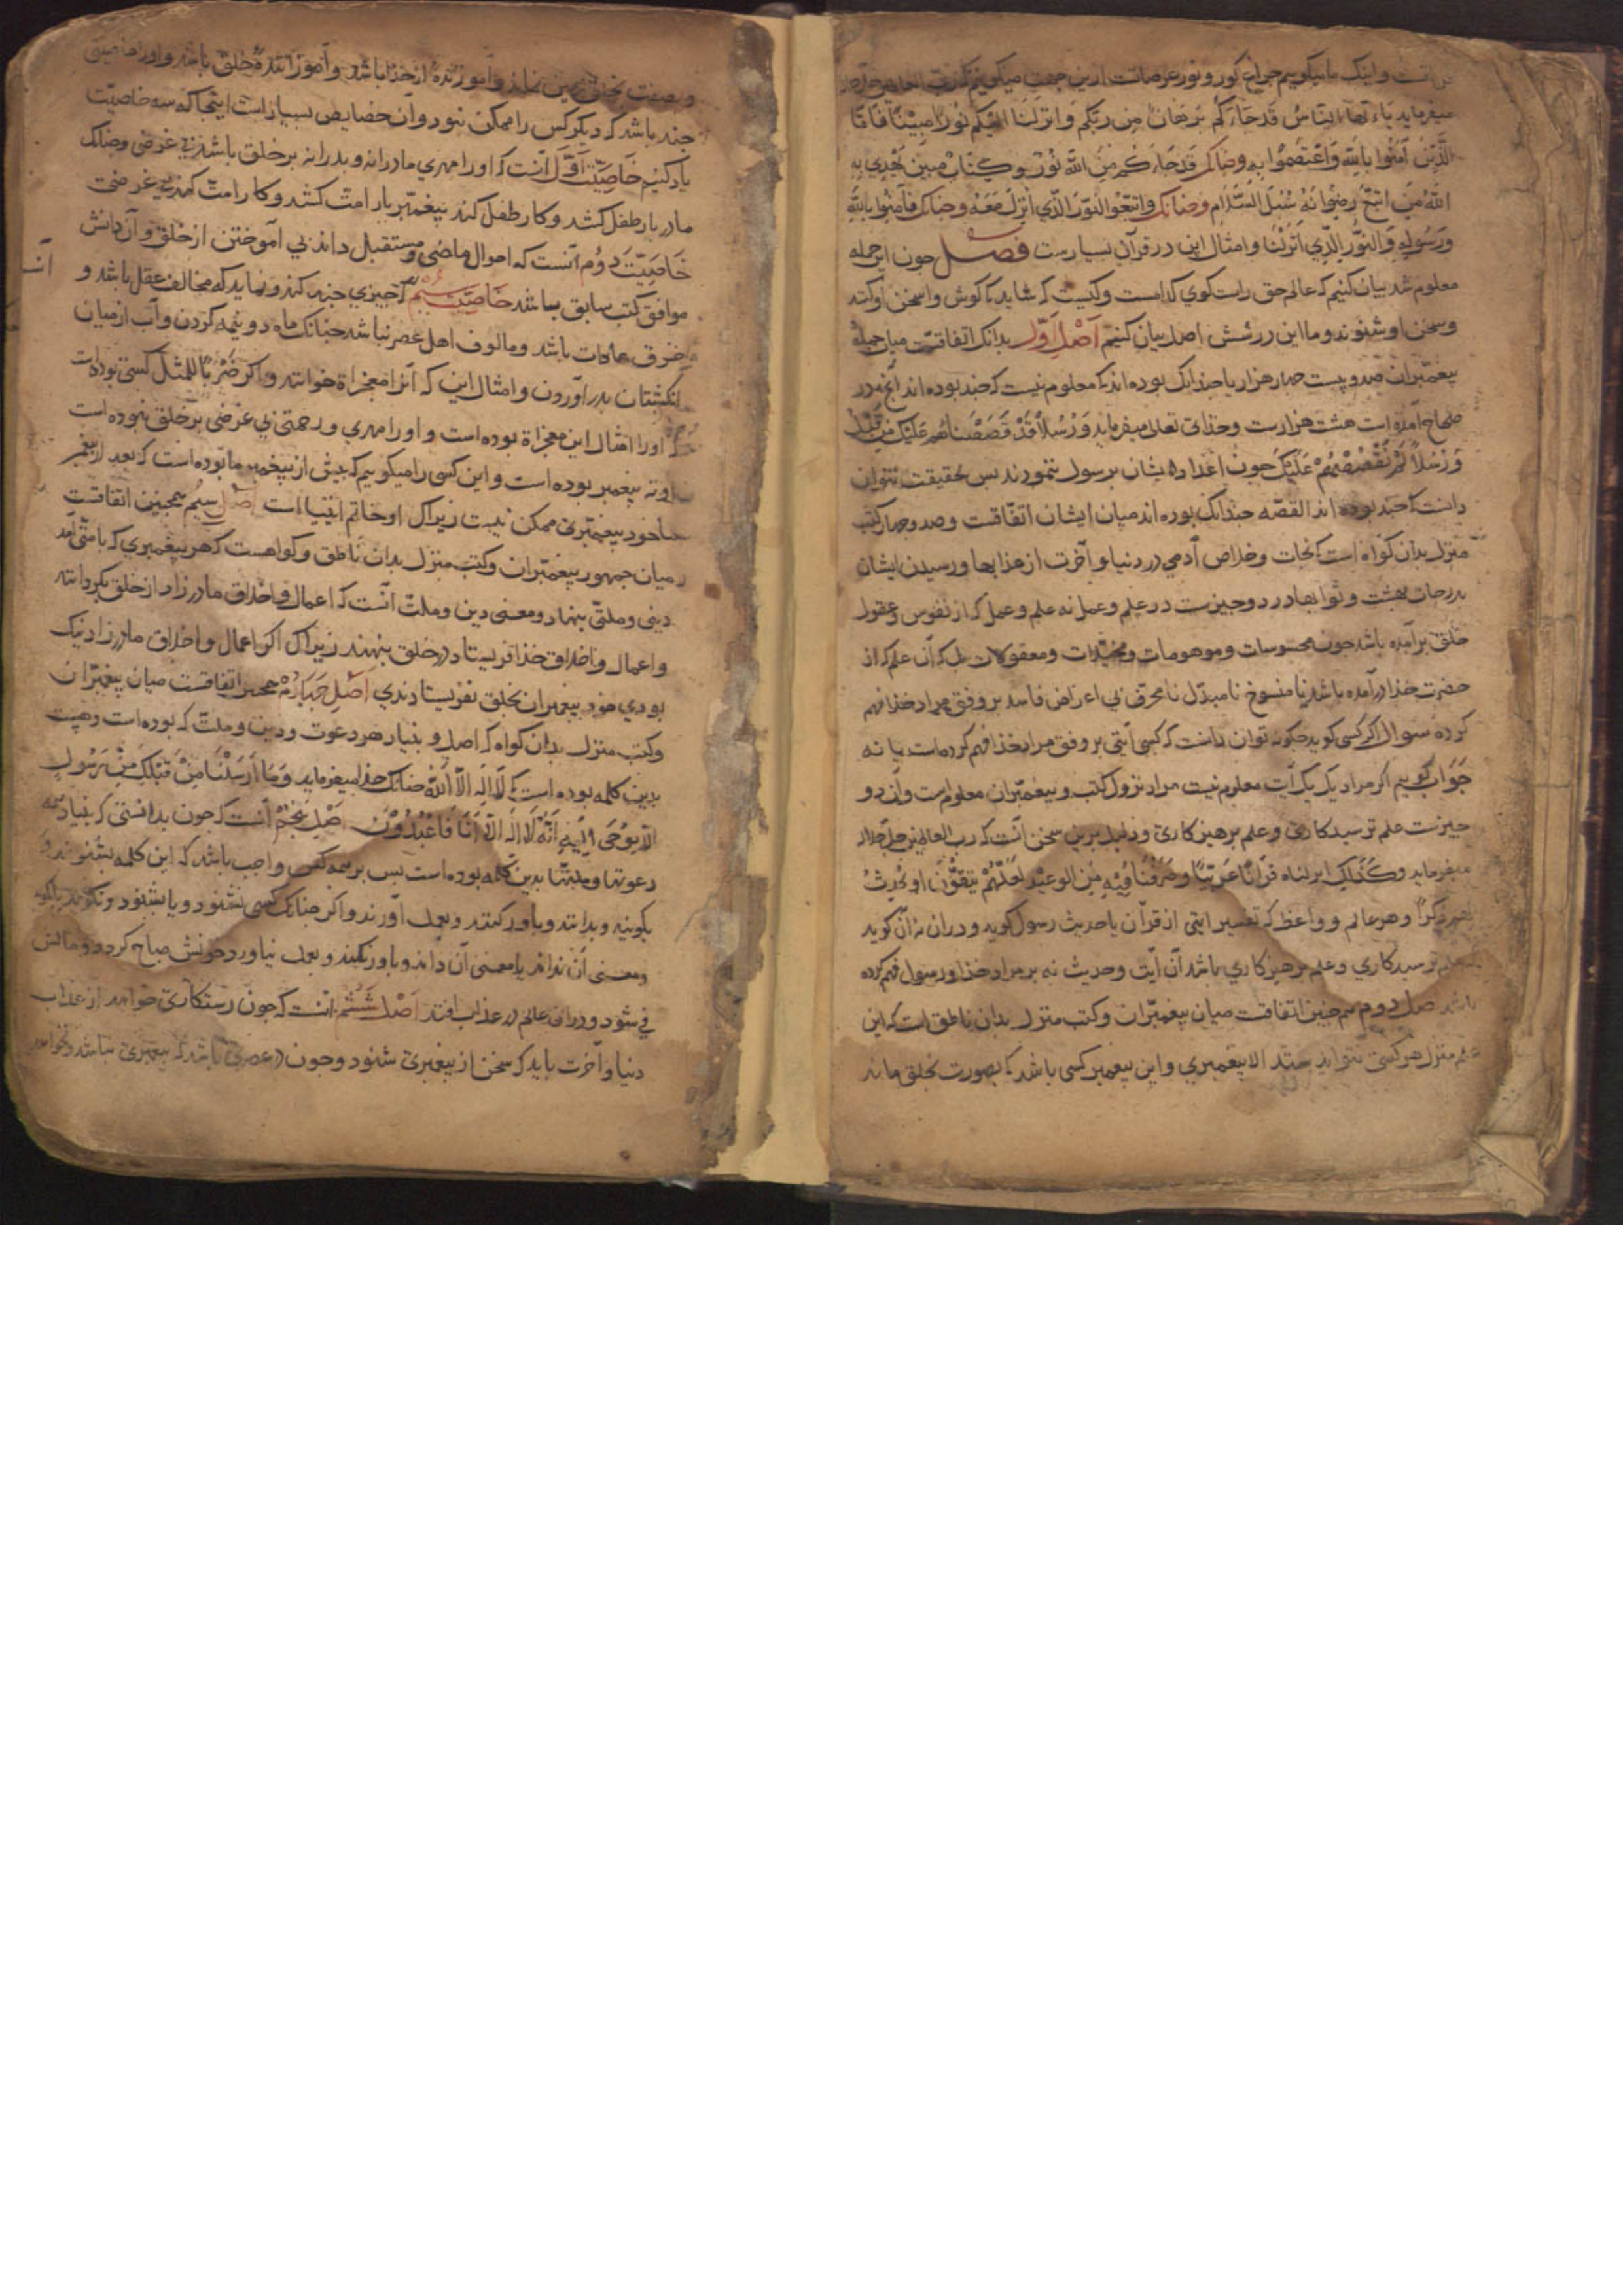 است و اینک ما میکوییم چراغ کور و نور عرصاتست ازین جهت میکوییم که رب العالمین
میفرماید یاء یها الناس قد جاءکم برهان من ربکم و انزلنا الیکم نورا مبینا فاما
الذین آمنوا بالله واعتصموا به وچنانک قد جاءکم من الله نور وکتاب مبین یهدی به
الله من اتبع رضوانه سبل السلام وچنانک واتبعوا النور الذی انزل معه وچنانک فآمنوا بالله
ورسوله والنور الذی انزلنا وامثال این در قرآن بسیارست فصل جون این جمله
معلوم شد بیان کنیم که عالم حق راست کوی کدامست وکیست که شاید که کوش واسخن او کنند
وسخن او شنوند وما این در شش اصل بیان کنیم اصل اول بدانک اتفاقست میان جمله
پیغمبران صد وبیست جهار هزار یا جندانک بوده اند که معلوم نیست که جند بوده اند آنج در
صحاح آمده است هشت هزارست وخذای تعالی میفرماید ورسلا قد قصصناهم علیک من قبل
ورسلا لم نقصصهم علیک جون اعداد ایشان برسول ننمودند بس بحقیقت نتوان
دانست که جند بوده اند القصه جندانک بوده اند میان ایشان اتفاقست وصد وجهار کتب
منزل بدان کواه است که نجات وخلاص آدمی در دنیا و آخرت از عذابها ورسیدن ایشان
بدرجات بهشت وثوابها در دو جیزست در علم وعمل نه علم وعمل که از نفوس وعقول
خلق برآمده باشد جون محسوسات وموهومات ومخیلات ومعقولات بل که آن علم که از
حضرت خذا درآمده باشد نا منسوخ نا مبدل نا محرف بی اعراض فاسد بر وفق مراد خذا فهم
کرده سوال اکر کسی کوید جکونه توان دانست که کسی آیتی بر وفق مراد خذا فهم کرده است یا نه
جواب کوییم اکر مراد یک یک آیت معلوم نیست مراد نزول کتب وپیغمبران معلومست وآن دو
جیزست علم ترسیدکاری وعلم پرهیزکاری ودلیل برین سخن آنست که رب العالمین جل جلاله
میفرماید وکذلک انزلناه قرآنا عربیا وصرفنا فیه من الوعید لعلهم یتقون او یحدث
لهم ذکرا وهر عالم وواعظ که تفسیر ایتی از قرآن یا حدیث رسول کوید ودران نه آن کوید
که علم ترسیدکاری وعلم پرهیزکاری باشد آن آیت وحدیث نه بر مراد خذا ورسول فهم کرده
باشد اصل دوم همجنین اتفاقست میان پیغمبران وکتب منزل بدان ناطق است که این
علم منزل هر کسی نتواند ستد الا پیغمبری واین پیغمبر کسی باشد که بصورت بخلق ماند
وبصفت بخلق نماند وآموزنده از خذا باشد وآموزاننده خلق باشد واورا خاصیتی
جند باشد که دیکر کس را ممکن نبود وآن خصایص بسیارست اینجا که سه خاصیت
یاد کنیم خاصیت اول آنست که اورا مهری مادرانه وپدرانه بر خلق باشد بی غرضی وچنانک
مادر بار طفل کشد وکار طفل کند پیغمبر بار امت کشد وکار امت کند بی غرضی
خاصیت دوم آنست که احوال ماضی ومستقبل داند بی آموختن از خلق وآن دانش
موافق کتب سابق باشد خاصیت سیم که جیزی جند کند ونماید که مخالف عقل باشد و
خرق عادات باشد ومالوف اهل عصر نباشد چنانک ماه دو نیمه کردن وآب از میان
انکشتان بدر آوردن وامثال این که آنرا معجزاة خوانند واکر ضربا للمثل کسی بوده است
که اورا امثال این معجزاة بوده است واورا مهری ورحمتی بی غرضی بر خلق نبوده است
او نه پیغمبر بوده است واین کسی را میکوییم که پیش از پیغمبر ما بوده است که بعد از پیغمبر
ما خود پیغمبری ممکن نیست زیراک او خاتم انبیا است اصل سیم همجنین اتفاقست
میان جمهور پیغمبران وکتب منزل بدان ناطق وکواهست که هر پیغمبری که بامتی آمد
دینی وملتی بنهاد ومعنی دین وملت آنست که اعمال واخلاق مادرزاد از خلق بکرداند
واعمال واخلاق خذا فریستاد در خلق بنهند زیراک اکر اعمال واخلاق مادرزاد نیک
بودی خود پیغمبران بخلق نفریستادندی اصل جهارم همجنین اتفاقست میان پیغمبران
وکتب منزل بدان کواه که اصل وبنیاد هر دعوت ودین وملت که بوده است وهست
بدین کلمه بوده است که لا اله الا الله چنانک خذا میفرماید وما ارسلنا من قبلک من رسول
الا یوحی الیه انه لا اله الا انا فاعبدون اصل پنجم آنست که جون بدانستی که بنیاد همه
دعوتها وملتها بدین کلمه بوده است بس بر همه کس واجب باشد که این کلمه بشنوند و
بکویند وبدانند وباور کنند وبعمل آورند واکر چنانک کسی نشنود ویا بشنود ونکوید یا بکوید
ومعنی آن نداند یا معنی آن داند وباور نکند وبعمل نیاورد خونش مباح کردد ومالش
فی شود ودران عالم در عذاب افتد اصل ششم آنست که جون رستکاری خواهد از عذاب
دنیا وآخرت باید که سخن از پیغمبری شنود وجون در عصری باشد که پیغمبری نباشد ونخواهد